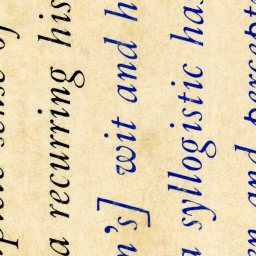 plete sense of
a recurring his
n's] wit and h
a syllogistic has
en and percepte